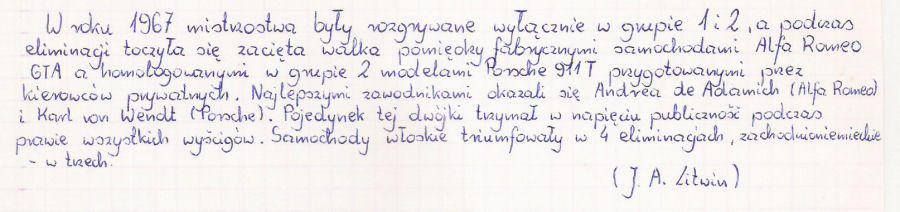 W roku 1967 mistrzostwa były rozgrywane wyłącznie w grupie 1 i 2, a podczas
eliminacji toczyła się zacięta walka pomiędzy fabrycznymi samochodami Alfa Romeo
GTA a homologowanymi w grupie 2 modelami Porsche 911T przygotowanymi przez
kierowców prywatnych. Najlepszymi zawodnikami okazali się Andrea de Adamich (Alfa Romeo)
i Karl von Wendt (Porsche). Pojedynek tej dwójki trzymał w napięciu publiczność podczas
prawie wszystkich wyścigów. Samochody włoskie triumfowały w 4 eliminacjach, zachodnioniemieckie
- w trzech.
(J. A. Litwin)